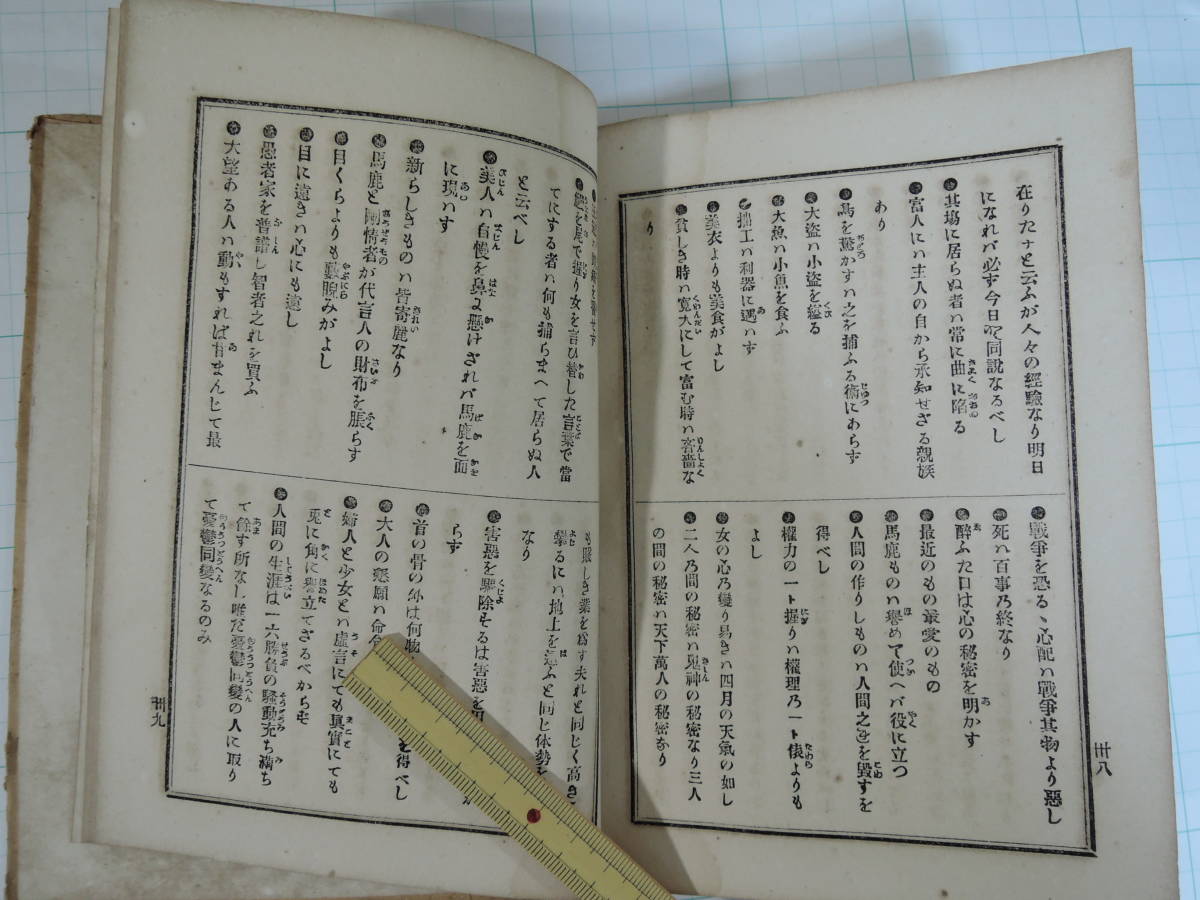 在りたナと云ふが人々の經驗なり明日
になれバ必ず今日と同説なるべし
其塲に居らぬ者ハ常に曲に陷る
富人にハ主人の自から承知せざる親族
あり
馬を驚かすハ之を捕ふる術にあらず
大盗ハ小盗を縊る
大魚ハ小魚を食ふ
拙工ハ利器に遇ハず
美衣よりも美食がよし
貧しき時ハ寛大にして富む時ハ吝嗇な
り
戰爭を恐るゝ心配ハ戰爭其物より惡し
死ハ百事乃終なり
醉ふた日は心の秘密を明かす
最近のもの最愛のもの
馬鹿ものハ譽めて使へバ役に立つ
人間の作りしものハ人間之を毀すを
得べし
權力の一ト握りハ權理乃一ト俵よりも
よし
女の心乃變り易きハ四月の天氣の如し
二人乃間の秘密ハ鬼神の秘密なり三人
の間の秘密ハ天下萬人の秘密なり
卅八
尾で握り女を言ひ替した言葉で當
てにする者ハ何も捕らまへて居らぬ人
と云べし
美人ハ自慢を鼻に懸けざれバ馬鹿を面
に現ハす
新らしきものハ皆寄麗なり
馬鹿と剛情者が代言人の財布を脹らす
目くらよりも藪睨みがよし
目に遠きハ心にも遠し
愚者家を普請し智者之れを買ふ
大望ある人ハ動もすれば甘まんじて最
も賤しき業を爲す夫れと同じく高き
攀るにハ地上を這ふと同じ体勢
なり
害惡を驅除するは害惡を
らず
首の骨の外は何物
大人の懇願ハ命令
を得べし
婦人と少女とハ虚言にても眞實にても
兎に角に譽立てざるべからず
人間の生涯は一六勝負の騷動充ち滿ち
て餘す所なし唯だ憂鬱同變の人に取り
て憂鬱同變なるのみ
卅九